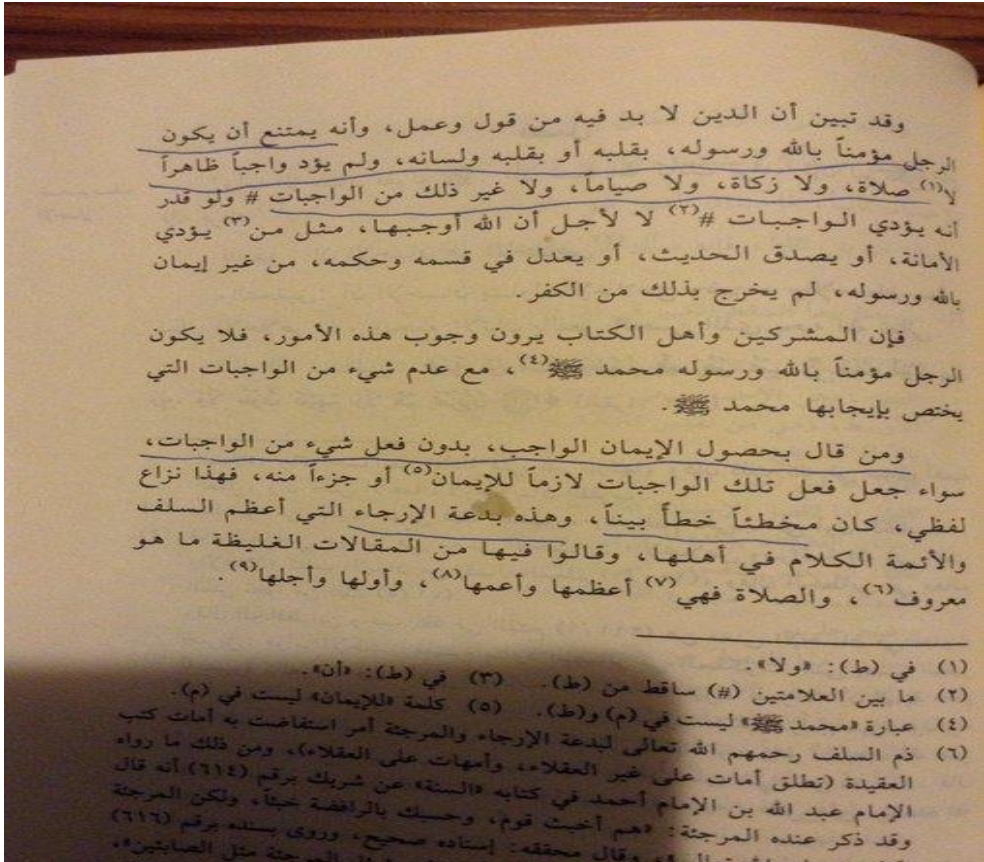 وقد تبين أن الدين لا بد فيه من قول وعمل، وأنه يمتنع أن يكون
الرجل مؤمناً بالله ورسوله، بقلبه أو بقلبه ولسانه، ولم يؤد واجباً ظاهراً
لا(١) صلاة، ولا زكاة، ولا صياماً، ولا غير ذلك من الواجبات # ولو قدر
أنه يؤدي الواجبات #(٢) لا لأجل أن الله أوجبها، مثل من(٣) يؤدي
الأمانة، أو يصدق الحديث، أو يعدل في قسمه وحكمه، من غير إيمان
بالله ورسوله، لم يخرج بذلك من الكفر.
فإن المشركين وأهل الكتاب يرون وجوب هذه الأمور، فلا يكون
الرجل مؤمناً بالله ورسوله محمد ﷺ(٤)، مع عدم شيء من الواجبات التي
يختص بإيجابها محمد ﷺ.
ومن قال بحصول الإيمان الواجب، بدون فعل شيء من الواجبات،
سواء جعل فعل تلك الواجبات لازماً للإيمان(٥) أو جزءاً منه، فهذا نزاع
لفظي، كان مخطئاً خطأً بيناً، وهذه بدعة الإرجاء التي أعظم السلف
والأئمة الكلام في أهلها، وقالوا فيها من المقالات الغليظة ما هو
معروف(٦)، والصلاة فهي(٧) أعظمها وأعمها(٨)، وأولها وأجلها(٩).
(١) في (ط): «ولا».
(٢) ما بين العلامتين (#) ساقط من (ط). (٣) في (ط): «أن».
(٤) عبارة «محمد ﷺ» ليست في (م) و(ط). (٥) كلمة «للإيمان» ليست في (م).
(٦) ذم السلف رحمهم الله تعالى لبدعة الإرجاء والمرجئة أمر استفاضت به أمات كتب
العقيدة (تطلق أمات على غير العقلاء، وأمهات على العقلاء)، ومن ذلك ما رواه
الإمام عبد الله بن الإمام أحمد في كتابه «السنة» عن شريك برقم (٦١٤) أنه قال
وقد ذكر عنده المرجئة: «هم أخبث قوم، وحسبك بالرافضة خبثاً، ولكن المرجئة
وقال محققه: إسناده صحيح، وروى بسنده برقم (٦١٦)
المرجئة مثل الصابئين»،